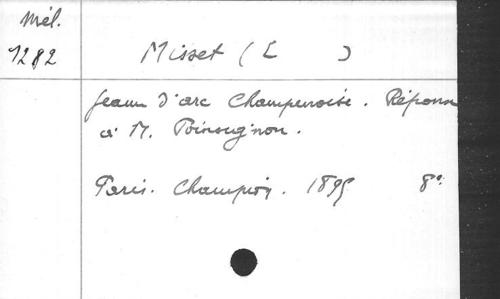 Mél.
1282
Misset (E )
Jeanne d'arc Champenoise. Réponse
à M. Poinsignon.
Paris. Champion. 1895 8º